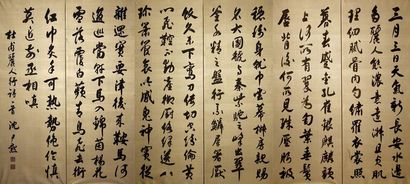 三月三日天氣新長安水邊
多麗人態濃意遠淑且真肌
理細膩骨肉勻繡羅衣裳照
暮春蹙金孔雀銀麒麟頭
上何所有翠為匎葉垂鬢
唇背後何所見珠壓腰衱
穩稱身就中雲幕椒房親賜
名大國虢與秦紫駝之峰出翠
釜水精之盤行素鱗犀箸厭
飫久未下鸞刀縷切空紛綸黃
門飛鞚不動塵御廚絡繹送八
珍簫管哀吟感鬼神賓從
雜遝實要津後來鞍馬何
逡巡當軒下馬入錦茵楊花
雪落覆白蘋青鳥飛去銜
紅巾炙手可熱勢絕倫慎
莫近前丞相嗔
杜甫麗人行詩 沈尹默